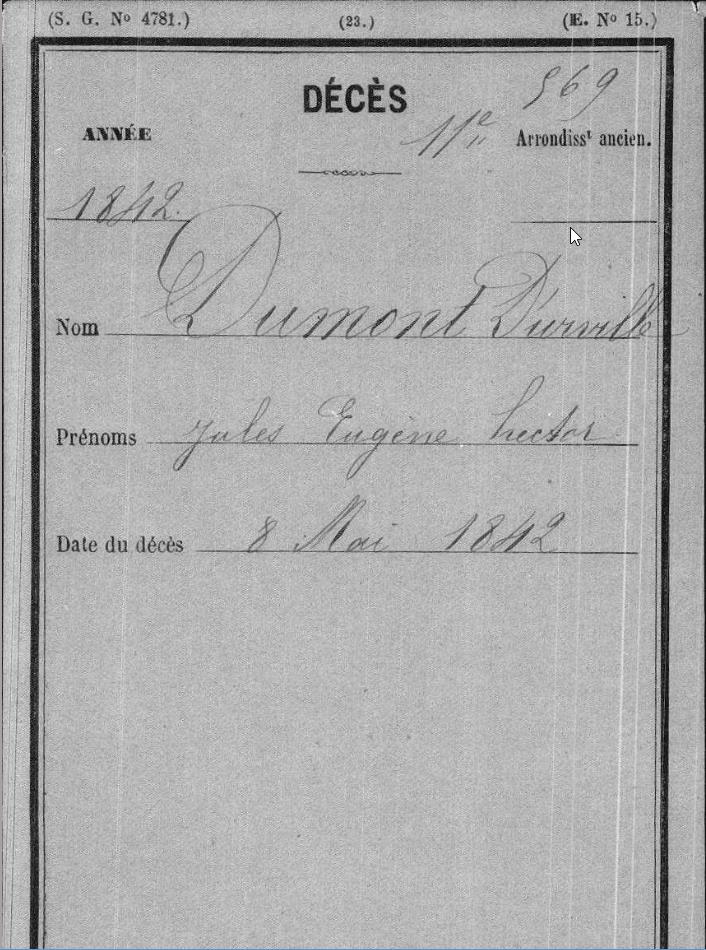 (S. G. Nº 4781.) (23.) (E. Nº 15.)
569
DÉCÈS
ANNÉE 11e Arrondisst ancien.
1842.
Nom Dumont D'urville
Prénoms Jules Eugène hector
Date du décès 8 Mai 1842